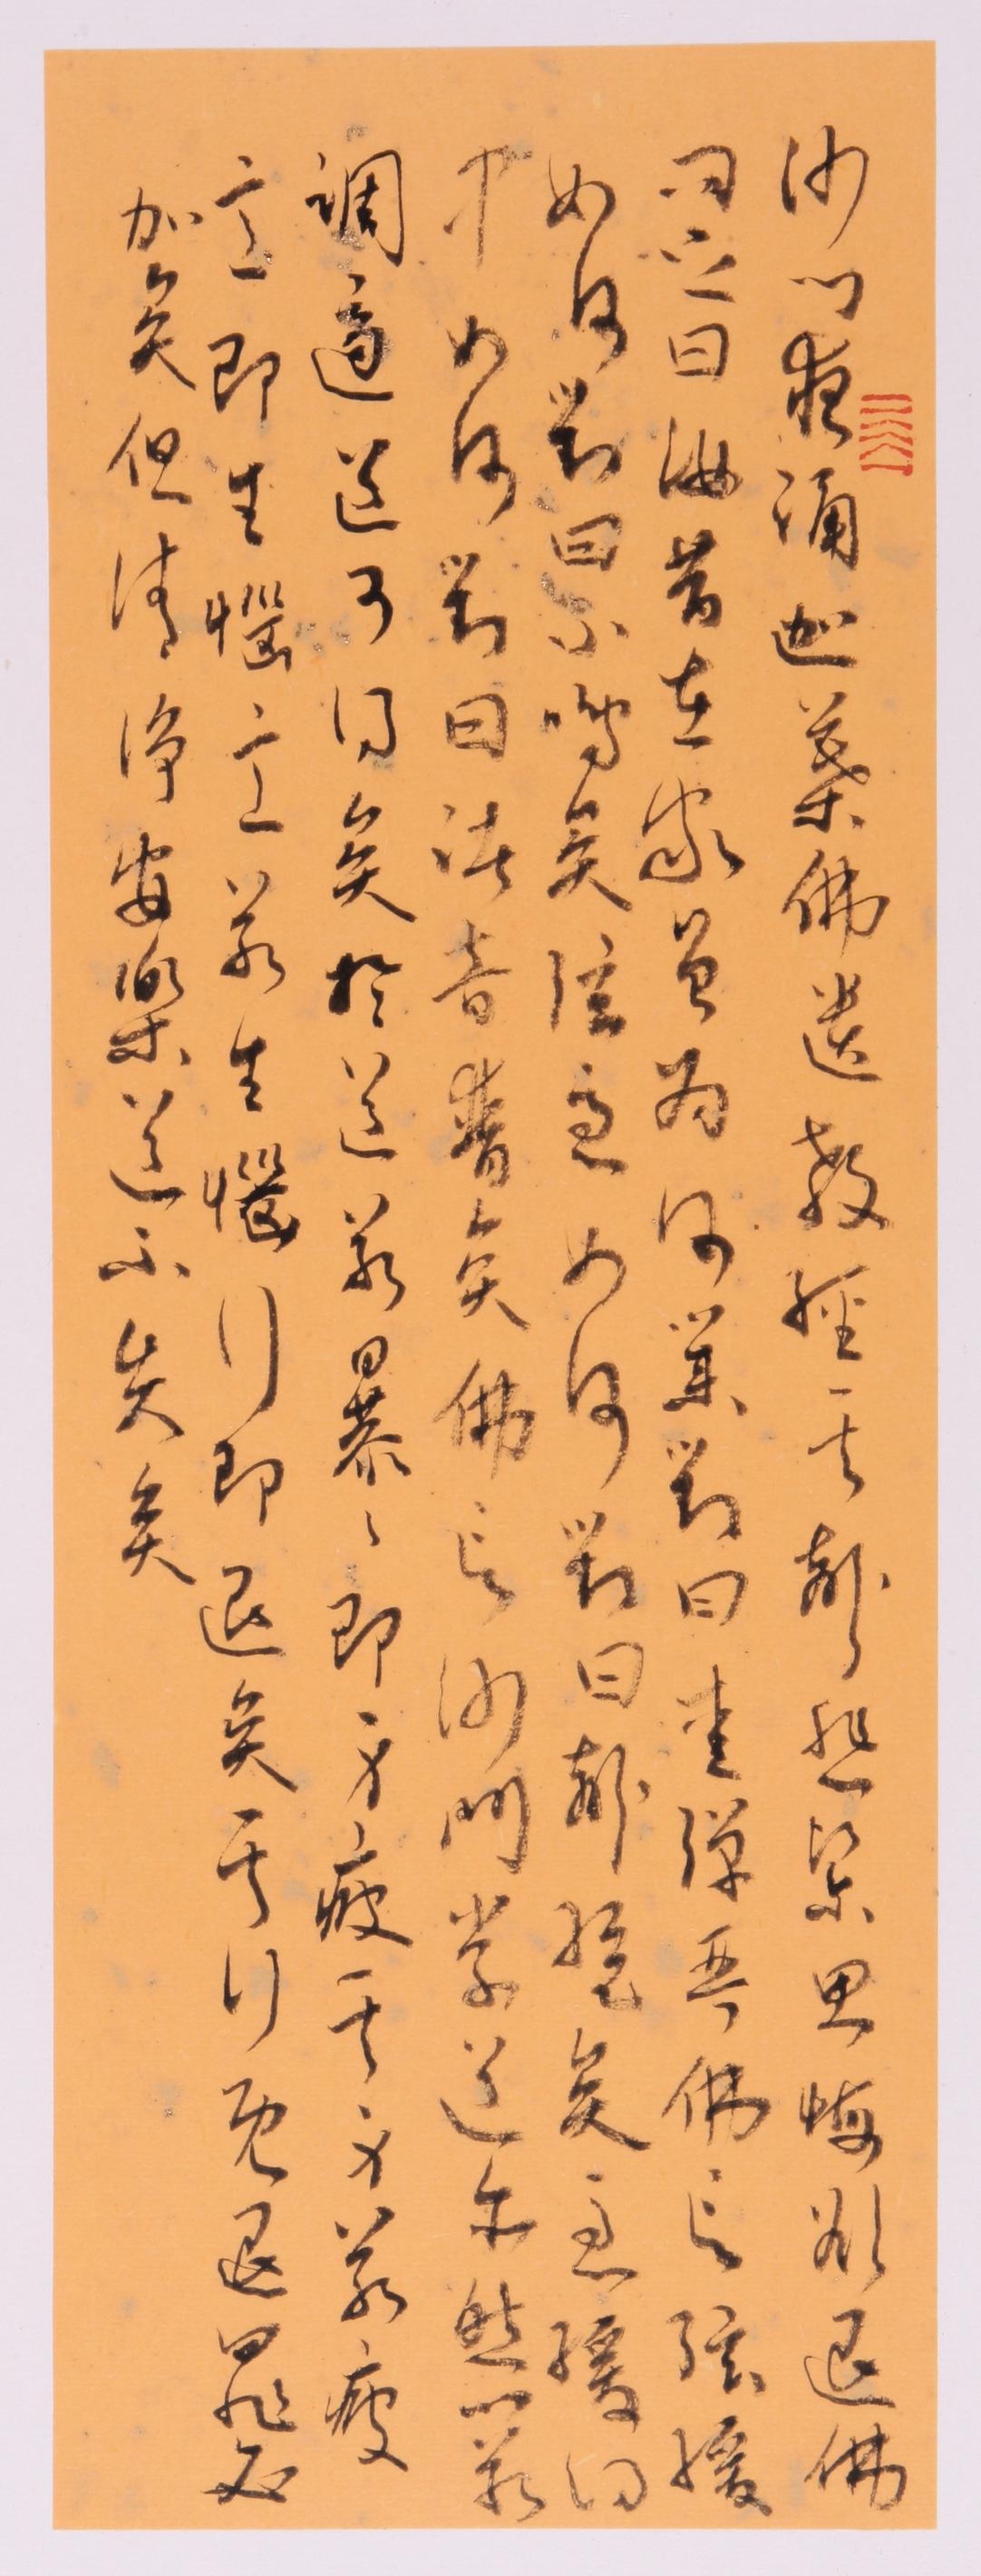 沙門夜誦迦葉佛遺教經其聲悲緊思悔欲退佛
問之曰汝昔在家曾為何業對曰愛彈琴佛言弦緩
如何對曰不鳴矣弦急如何對曰聲絕矣急緩得
中如何對曰諸音普矣佛言沙門學道亦然心若
調適道可得矣於道若暴暴即身疲其身若疲
意即生惱意若生惱行即退矣其行既退罪必
加矣但清淨安樂道不失矣